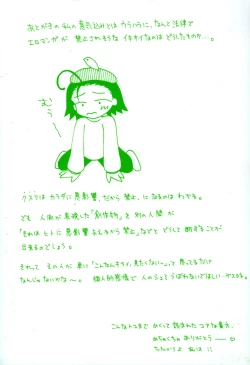 あとがきの私の意気込みとはウラハラに、なんと法律で
エロマンガが禁止されそうなイキオイなのはどうしたものか…。
むぅ
クスリはカラダに悪影響だから禁止、になるのはわかる。
でも人間が表現した「創作物」を別の人間が
「それはヒトに悪影響およぼすから禁止」などとどうして断することが
出来るのでしょう。
それってその人が単に「こんなんキライ、見たくない〜」って思ってるだけ
なんじゃないかな〜。個人的感情で人のシュミうばわないでほしいデスです。
こんなトコまで
めちゃくちゃありがとう